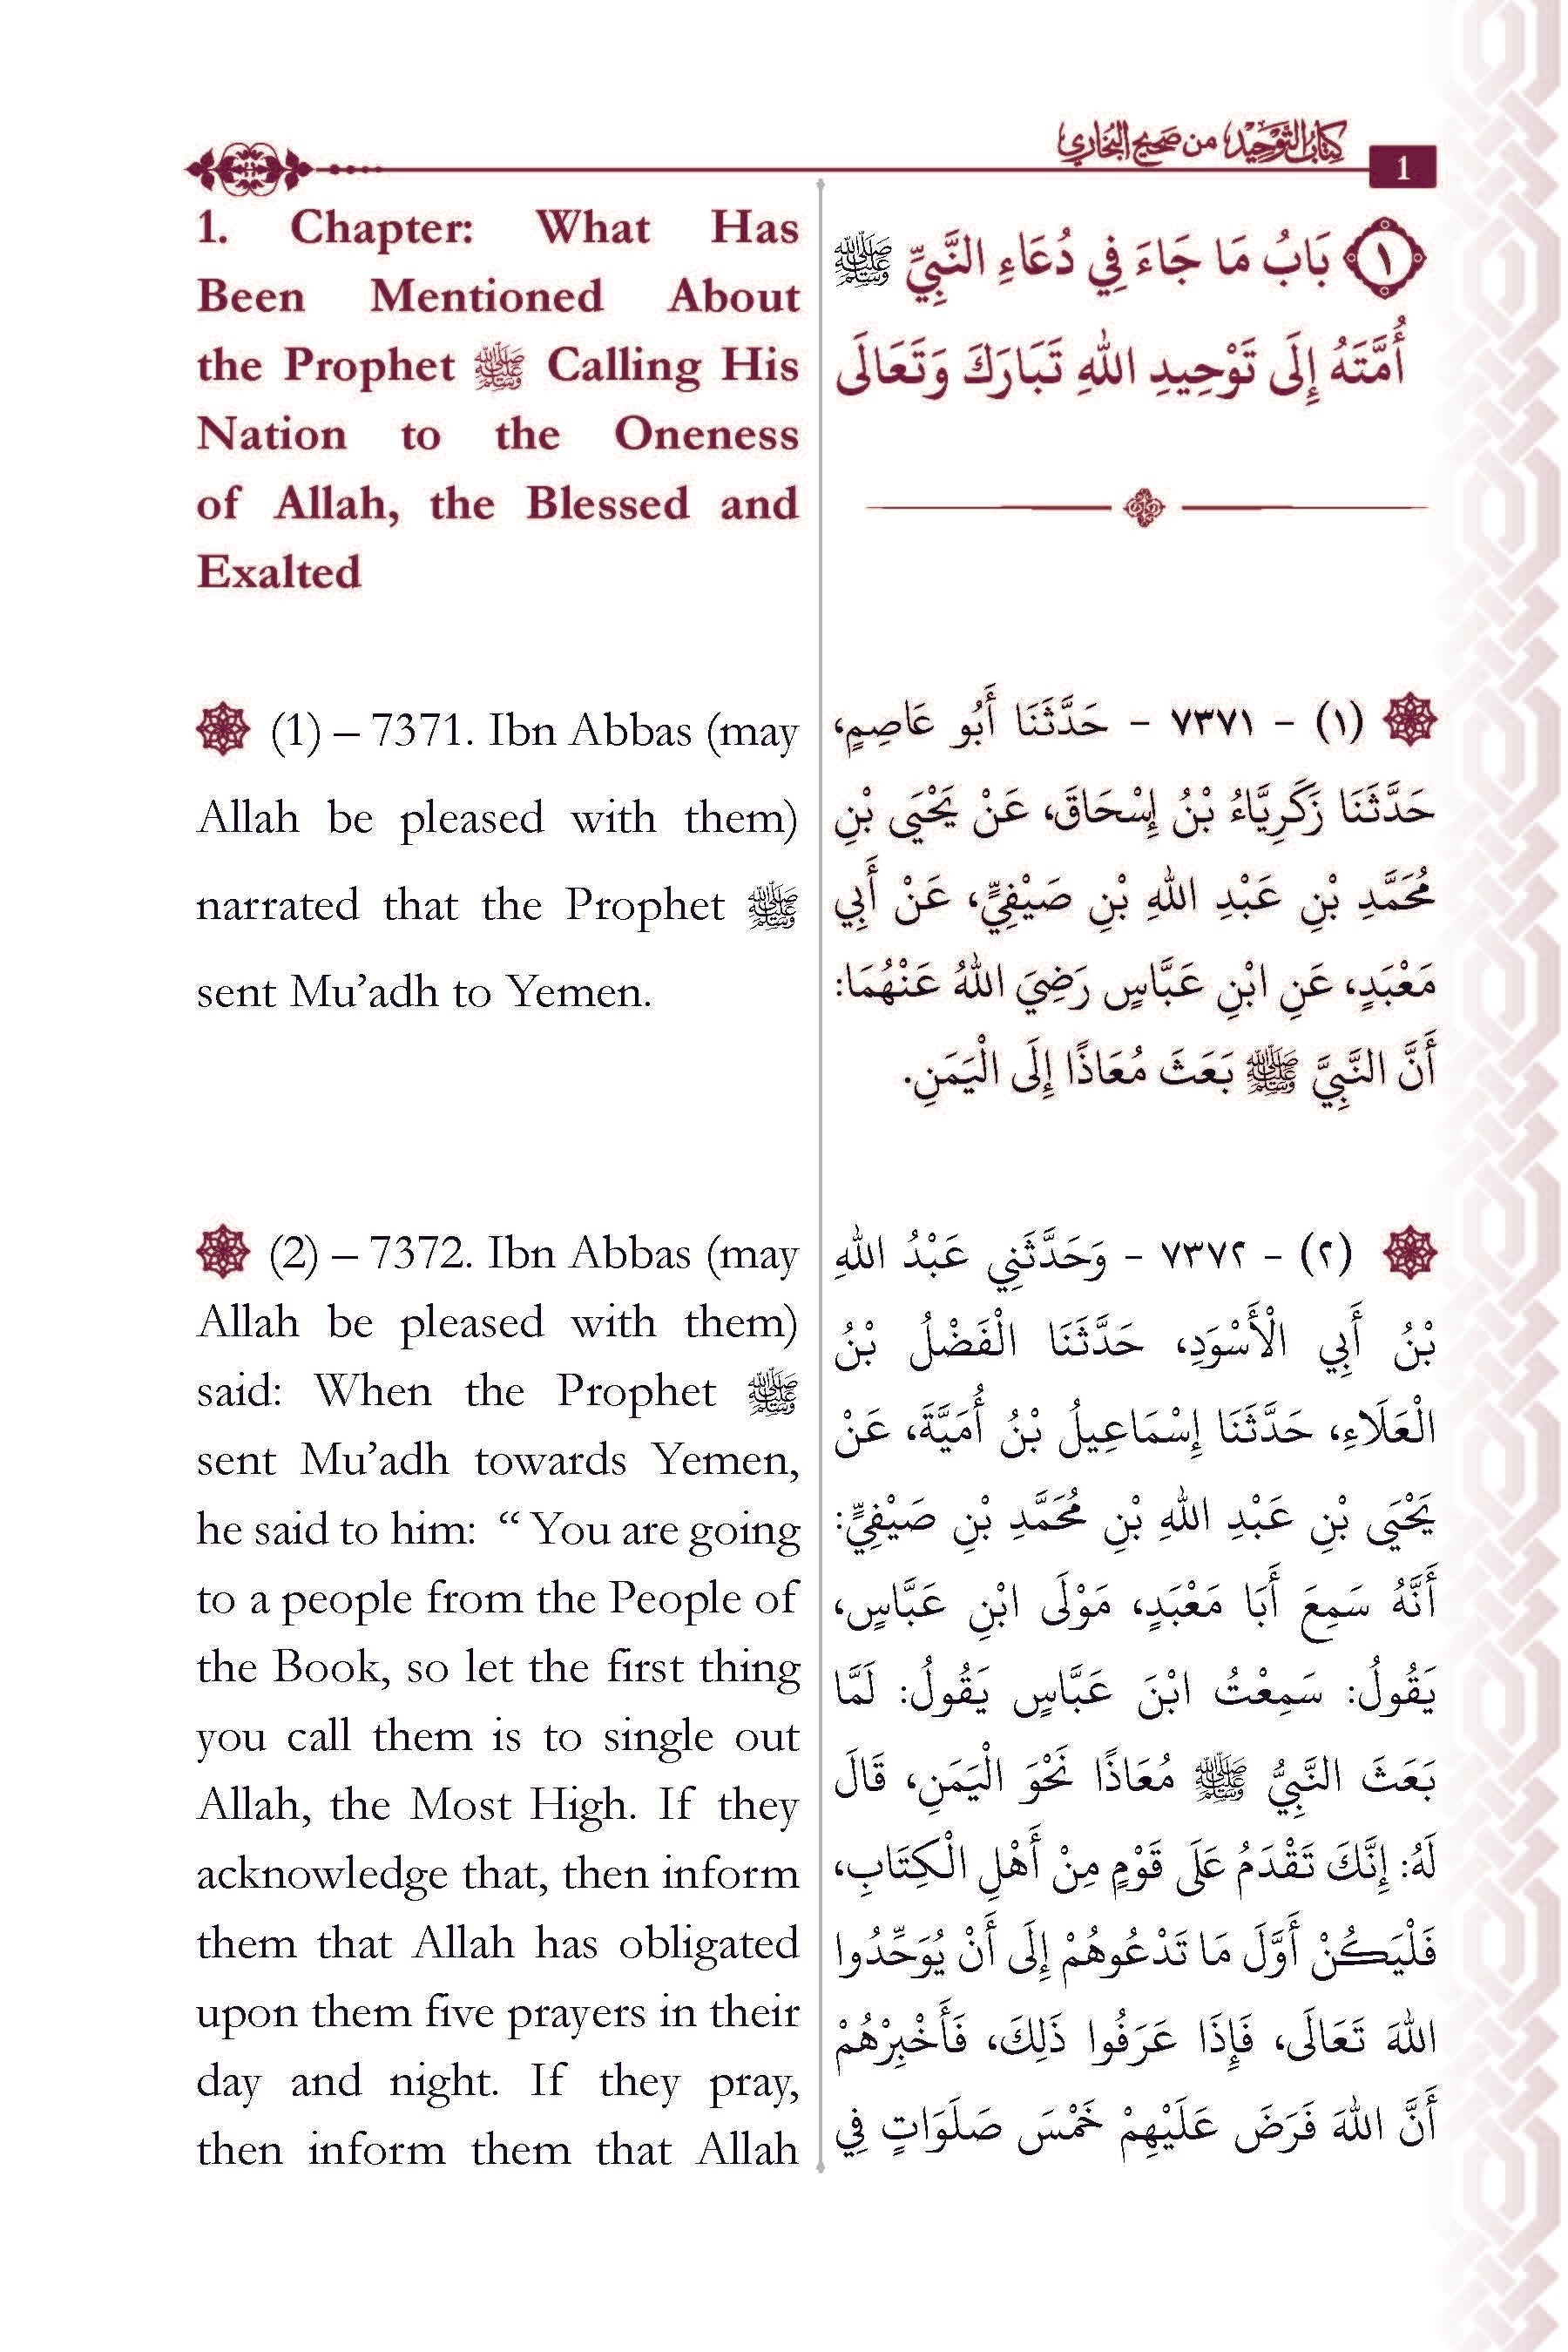 كتاب التوحيد من صحيح البخاري
1
1. Chapter: What Has
Been Mentioned About
the Prophet ﷺ Calling His
Nation to the Oneness
of Allah, the Blessed and
Exalted
(1) – 7371. Ibn Abbas (may
Allah be pleased with them)
narrated that the Prophet ﷺ
sent Mu’adh to Yemen.
(2) – 7372. Ibn Abbas (may
Allah be pleased with them)
said: When the Prophet ﷺ
sent Mu’adh towards Yemen,
he said to him: “ You are going
to a people from the People of
the Book, so let the first thing
you call them is to single out
Allah, the Most High. If they
acknowledge that, then inform
them that Allah has obligated
upon them five prayers in their
day and night. If they pray,
then inform them that Allah
١ بَابُ مَا جَاءَ فِي دُعَاءِ النَّبِيِّ ﷺ
أُمَّتَهُ إِلَى تَوْحِيدِ اللهِ تَبَارَكَ وَتَعَالَى
(١) - ٧٣٧١ - حَدَّثَنَا أَبُو عَاصِمٍ،
حَدَّثَنَا زَكَرِيَّاءُ بْنُ إِسْحَاقَ، عَنْ يَحْيَى بْنِ
مُحَمَّدِ بْنِ عَبْدِ اللهِ بْنِ صَيْفِيٍّ، عَنْ أَبِي
مَعْبَدٍ، عَنِ ابْنِ عَبَّاسٍ رَضِيَ اللهُ عَنْهُمَا:
أَنَّ النَّبِيَّ ﷺ بَعَثَ مُعَاذًا إِلَى الْيَمَنِ.
(٢) - ٧٣٧٢ - وَحَدَّثَنِي عَبْدُ اللهِ
بْنُ أَبِي الْأَسْوَدِ، حَدَّثَنَا الْفَضْلُ بْنُ
الْعَلَاءِ، حَدَّثَنَا إِسْمَاعِيلُ بْنُ أُمَيَّةَ، عَنْ
يَحْيَى بْنِ عَبْدِ اللهِ بْنِ مُحَمَّدِ بْنِ صَيْفِيٍّ:
أَنَّهُ سَمِعَ أَبَا مَعْبَدٍ، مَوْلَى ابْنِ عَبَّاسٍ،
يَقُولُ: سَمِعْتُ ابْنَ عَبَّاسٍ يَقُولُ: لَمَّا
بَعَثَ النَّبِيُّ ﷺ مُعَاذًا نَحْوَ الْيَمَنِ، قَالَ
لَهُ: إِنَّكَ تَقْدَمُ عَلَى قَوْمٍ مِنْ أَهْلِ الْكِتَابِ،
فَلْيَكُنْ أَوَّلَ مَا تَدْعُوهُمْ إِلَى أَنْ يُوَحِّدُوا
اللهَ تَعَالَى، فَإِذَا عَرَفُوا ذَلِكَ، فَأَخْبِرْهُمْ
أَنَّ اللهَ فَرَضَ عَلَيْهِمْ خَمْسَ صَلَوَاتٍ فِي